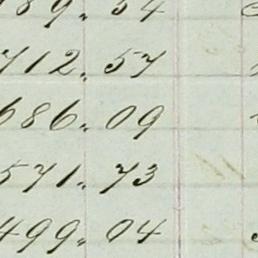 712. 57
686. 09
571. 73
499. 04